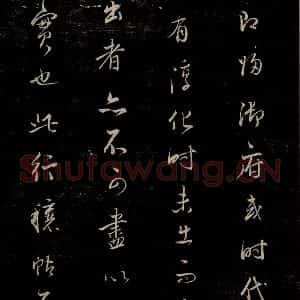 即御府或时代
有淳化时未出而
出者亦不可盡以
實也此行穰帖
Shufawang.CN